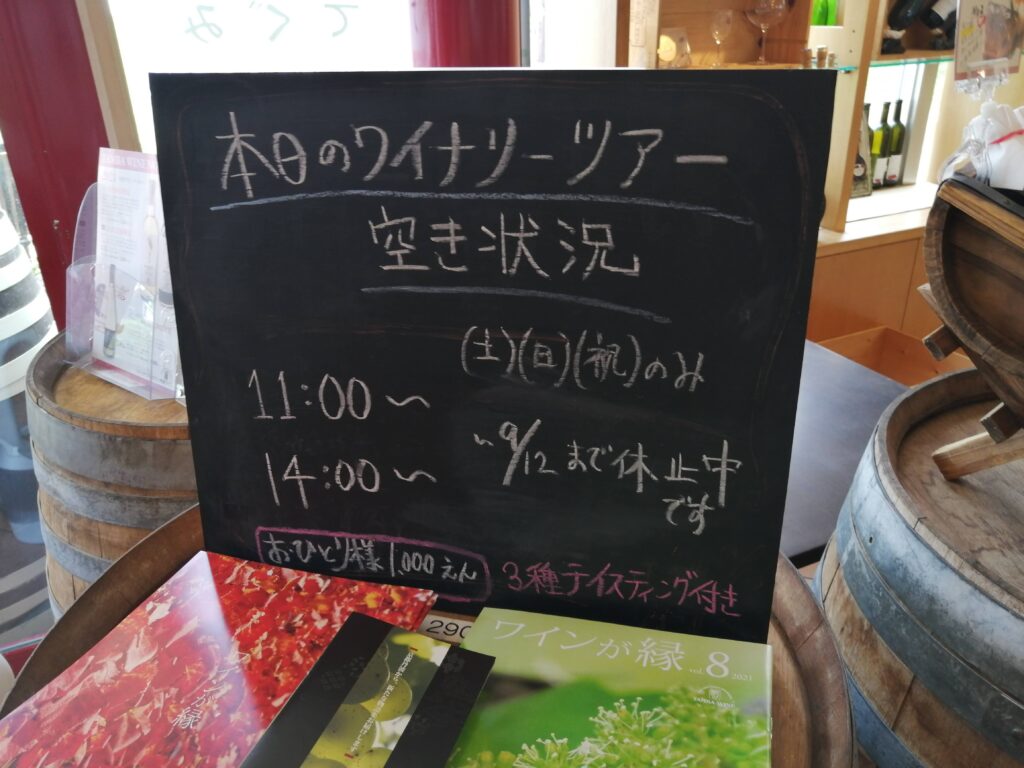 本日のワイナリーツアー
空き状況
(土)(日)(祝)のみ
11:00～
14:00～
～9/12まで休止中
です
おひとり様1,000えん
3種テイスティング付き
290
ワインが縁
vol.8 2021
ワインが縁